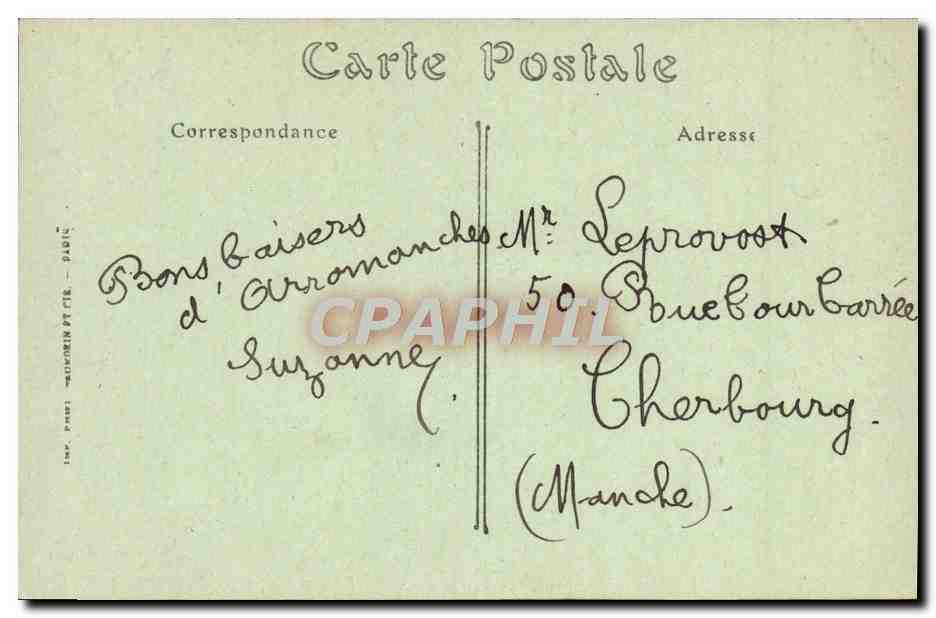 Carte Postale
Correspondance
Adresse
Bons baisers
d'Arromanches
Suzanne.
Mr. Leprovost
50. Rue Cour Carrée
Cherbourg.
(Manche).
CPAPHIL
IMP. PHOT. - PARIS